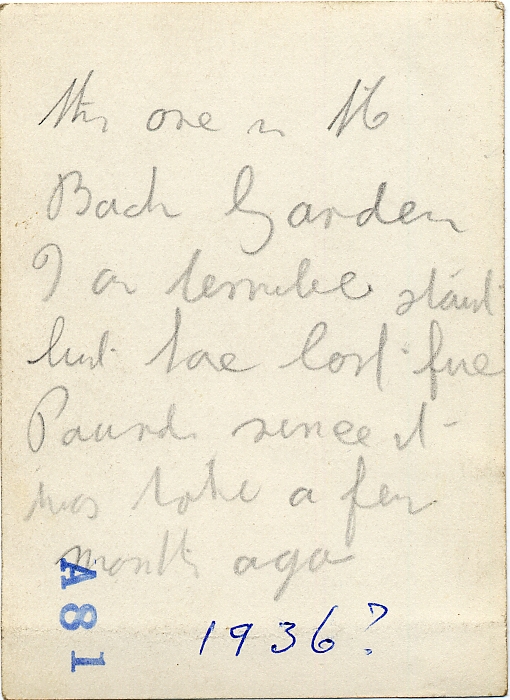 this one in the
Back Garden
I am terrible stout
but have lost five
Pounds since it
was take a few
months ago
A81
1936?